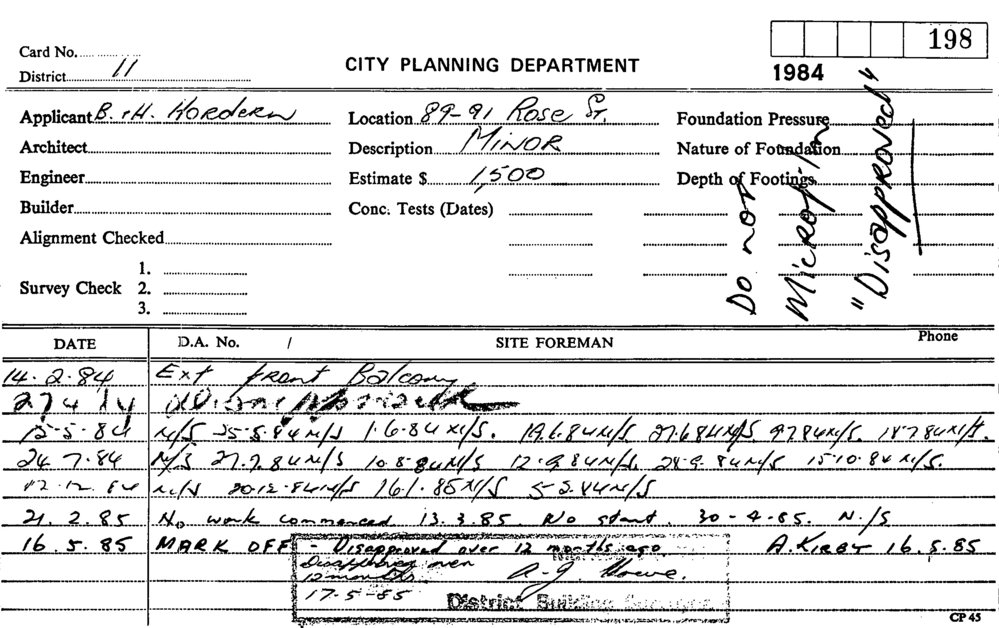 198
Card No.
District 11
CITY PLANNING DEPARTMENT
1984
Applicant B. & H. Hordern
Location 89-91 Rose St.
Foundation Pressure
Architect
Description Minor
Nature of Foundation
Engineer
Estimate $ 1,500
Depth of Footings
Builder
Conc. Tests (Dates)
Alignment Checked
Survey Check
1.
2.
3.
Do not
Microfilm
"Disapproved"
DATE
D.A. No. /
SITE FOREMAN
Phone
14.2.84 Ext front Balcony
15-5-84 N/S 25-5-84 N/S 1.6.84 N/S. 19.6.84 N/S 27.6.84 N/S 9.7.84 N/S. 18.7.84 N/S.
24.7.84 N/S 27.7.84 N/S 10.8.84 N/S 12.9.84 N/S. 28.9.84 N/S 15.10.84 N/S.
N/S 20.12.84 N/S 16.1.85 N/S N/S
21.2.85 No work commenced 13.3.85. No start. 30-4-85. N/S
16.5.85 MARK OFF - Disapproved over 12 months ago. A. KIRBY 16.5.85
Disapproved over
12 months
17-5-85
District Building Surveyor
CP 45